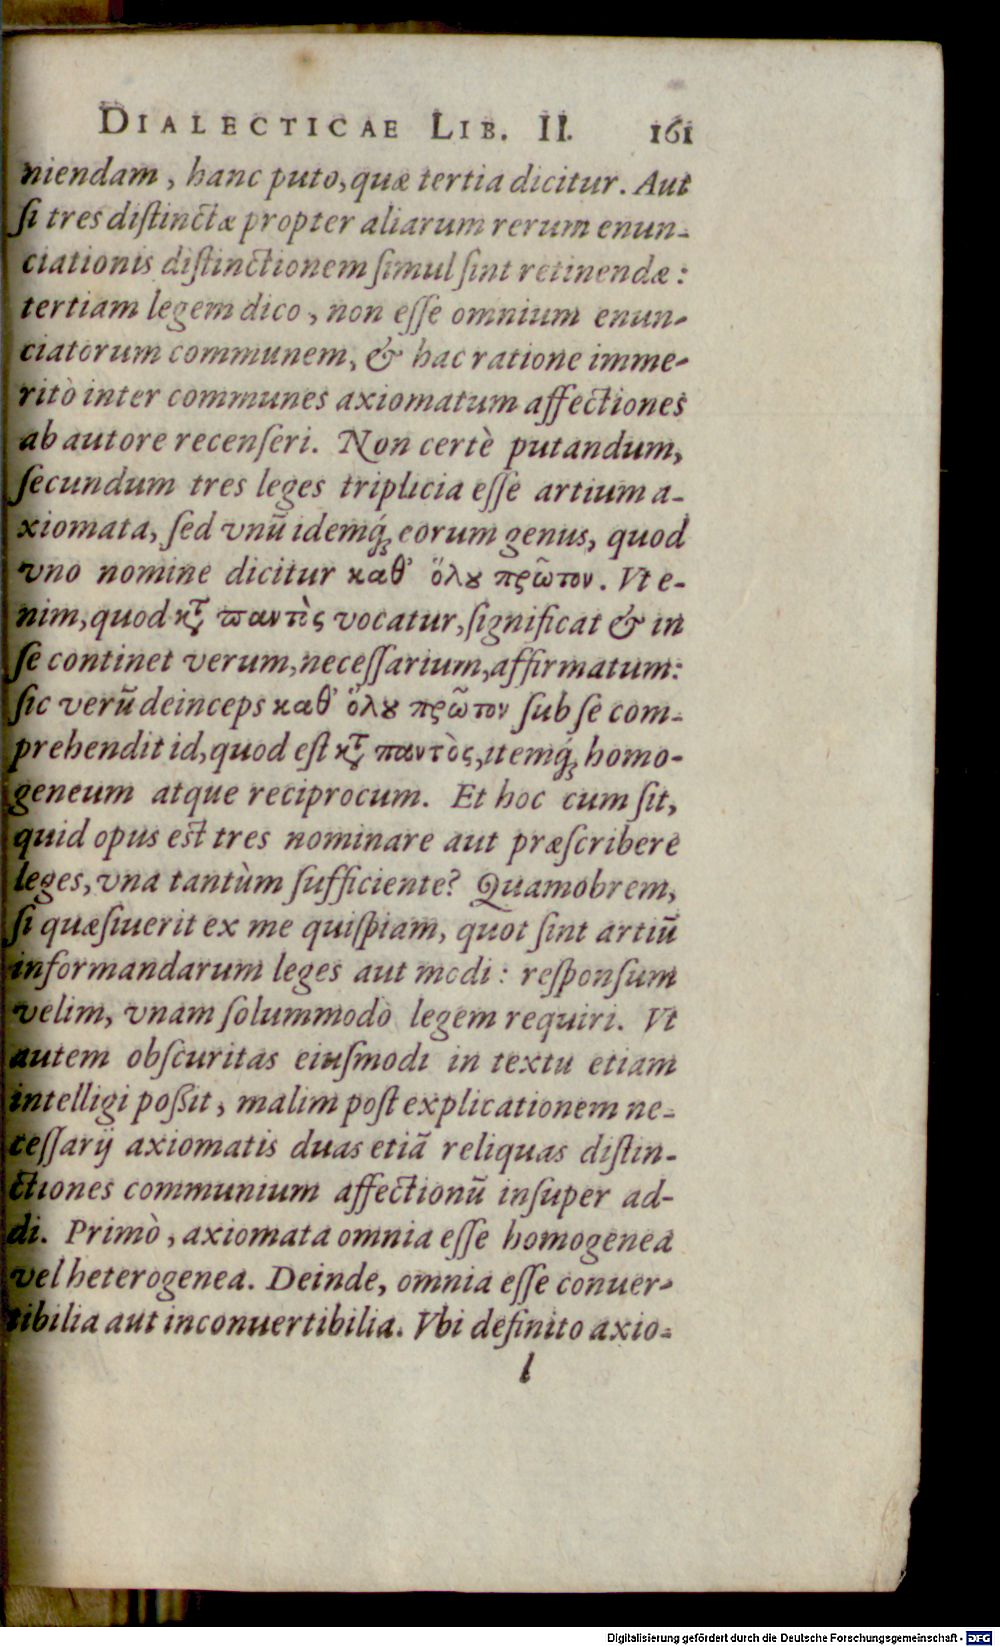 DIALECTICAE LIB. II. 161
niendam, hanc puto, quæ tertia dicitur. Aut
ſi tres diſtinctæ propter aliarum rerum enun-
ciationis diſtinctionem ſimul ſint retinendæ:
tertiam legem dico, non eſſe omnium enun-
ciatorum communem, & hac ratione imme-
ritò inter communes axiomatum affectiones
ab autore recenſeri. Non certè putandum,
ſecundum tres leges triplicia eſſe artium a-
xiomata, ſed vnũ idemq́; eorum genus, quod
vno nomine dicitur καθ’ ὅλȣ πρῶτον. Vt e-
nim, quod κτ̃ παντὸς vocatur, ſignificat & in
ſe continet verum, neceſſarium, affirmatum:
ſic verũ deinceps καθ’ ὅλȣ πρῶτον ſub ſe com-
prehendit id, quod eſt κτ̃ παντὸς, itemq́; homo-
geneum atque reciprocum. Et hoc cum ſit,
quid opus eſt tres nominare aut præſcribere
leges, vna tantùm ſufficiente? Quamobrem,
ſi quæſiuerit ex me quiſpiam, quot ſint artiũ
informandarum leges aut modi: reſponſum
velim, vnam ſolummodo legem requiri. Vt
autem obſcuritas eiuſmodi in textu etiam
intelligi poßit, malim poſt explicationem ne-
ceſſarij axiomatis duas etiã reliquas diſtin-
ctiones communium affectionũ inſuper ad-
di. Primò, axiomata omnia eſſe homogenea
vel heterogenea. Deinde, omnia eſſe conuer-
tibilia aut inconuertibilia. Vbi definito axio-
l
Digitalisierung gefördert durch die Deutsche Forschungsgemeinschaft - DFG